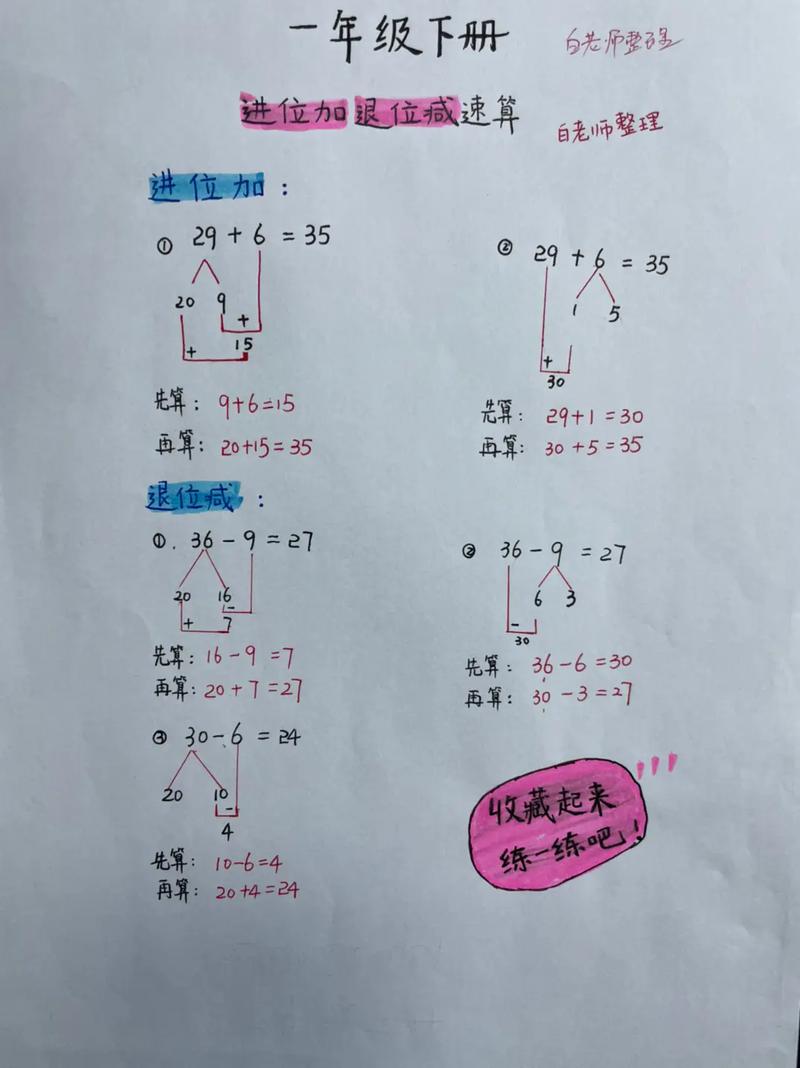 一年级下册
白老师整理
进位加退位减速算
白老师整理
进位加：
① 29 + 6 = 35
20 9
+
15
+
先算： 9+6=15
再算： 20+15=35
② 29 + 6 = 35
1 5
+
30
先算： 29+1=30
再算： 30+5=35
退位减：
①. 36 - 9 = 27
20 16
-
+ 7
先算： 16-9=7
再算： 20+7=27
② 36 - 9 = 27
6 3
-
30
先算： 36-6=30
再算： 30-3=27
③ 30-6 = 24
20 10
-
4
先算： 10-6=4
再算： 20+4=24
收藏起来
练一练吧！